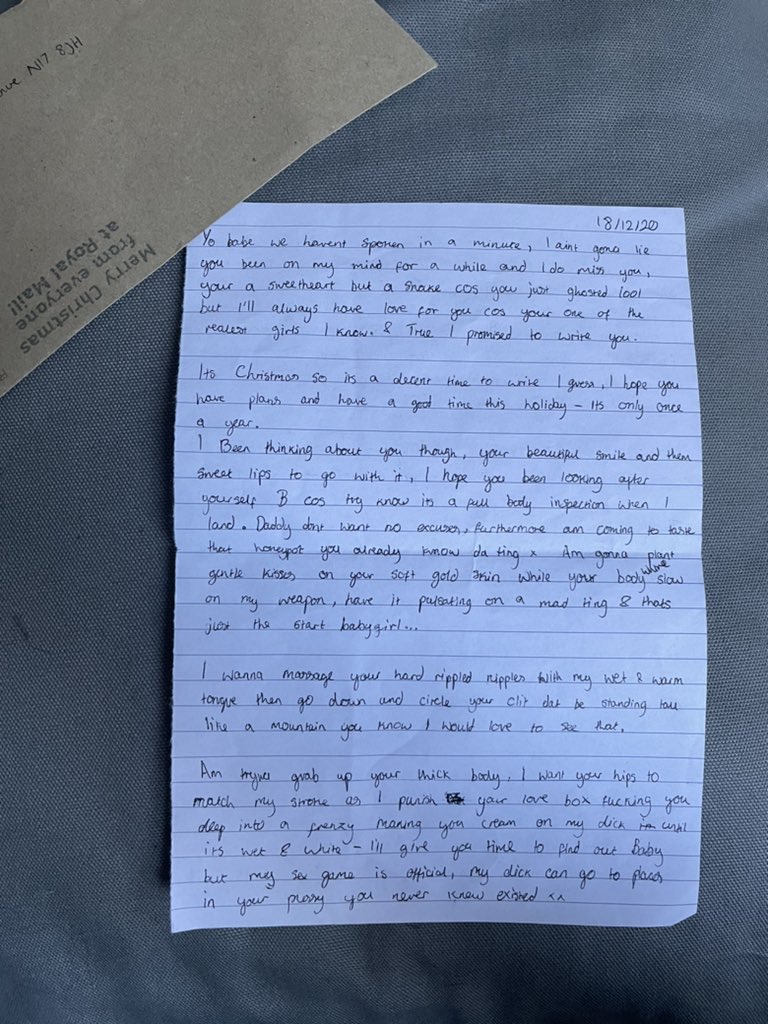 ove N17 8JH
Merry Christmas
from everyone
at Royal Mail!
18/12/20
Yo babe we havent spoken in a minute, I aint gona lie
you been on my mind for a while and I do miss you,
your a sweetheart but a snake cos you just ghosted lool
but I'll always have love for you cos your one of the
realest girls I know. & True I promised to write you.
Its Christmas so its a decent time to write I guess, I hope you
have plans and have a good time this holiday - Its only once
a year.
I Been thinking about you though, your beautiful smile and them
sweet lips to go with it, I hope you been looking after
yourself B cos try know its a full body inspection when I
land. Daddy dont want no excuses, furthermore am coming to taste
that honeypot you already know da ting x Am gonna plant
gentle kisses on your soft gold skin while your body whine slow
on my weapon, have it pulsating on a mad ting & thats
just the start babygirl...
I wanna massage your hard rippled nipples with my wet & warm
tongue then go down and circle your clit dat be standing tall
like a mountain you know I would love to see that.
Am tryna grab up your thick body, I want your hips to
match my stroke as I punish your love box fucking you
deep into a frenzy making you cream on my dick until
its wet & white - I'll give you time to find out Baby
but my sex game is official, my dick can go to places
in your pussy you never knew existed xx